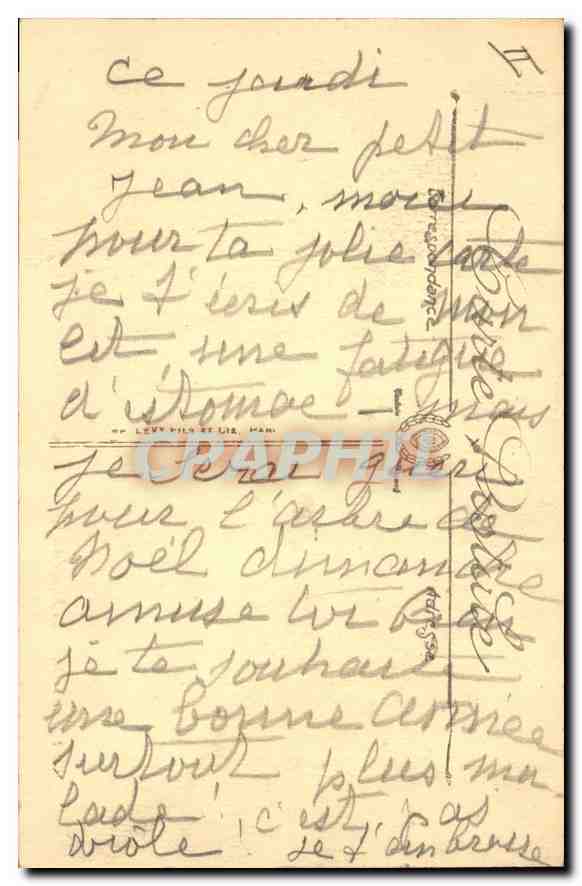 II
ce jeudi
Mon cher petit
Jean, merci
pour ta jolie carte
je t'écris de mon
lit, une fatigue
d'estomac — mais
je serai guéri
pour l'arbre de
Noël dimanche
amuse toi bien
je te souhaite
une bonne année
surtout plus ma
lade! c'est pas
drôle! je t'embrasse
Carte Postale
Correspondance
Adresse
LEVY FILS ET CIE, PARIS
CPAPHIL